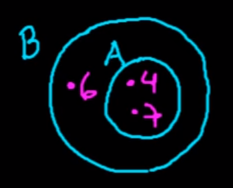 B
A
6
4
7